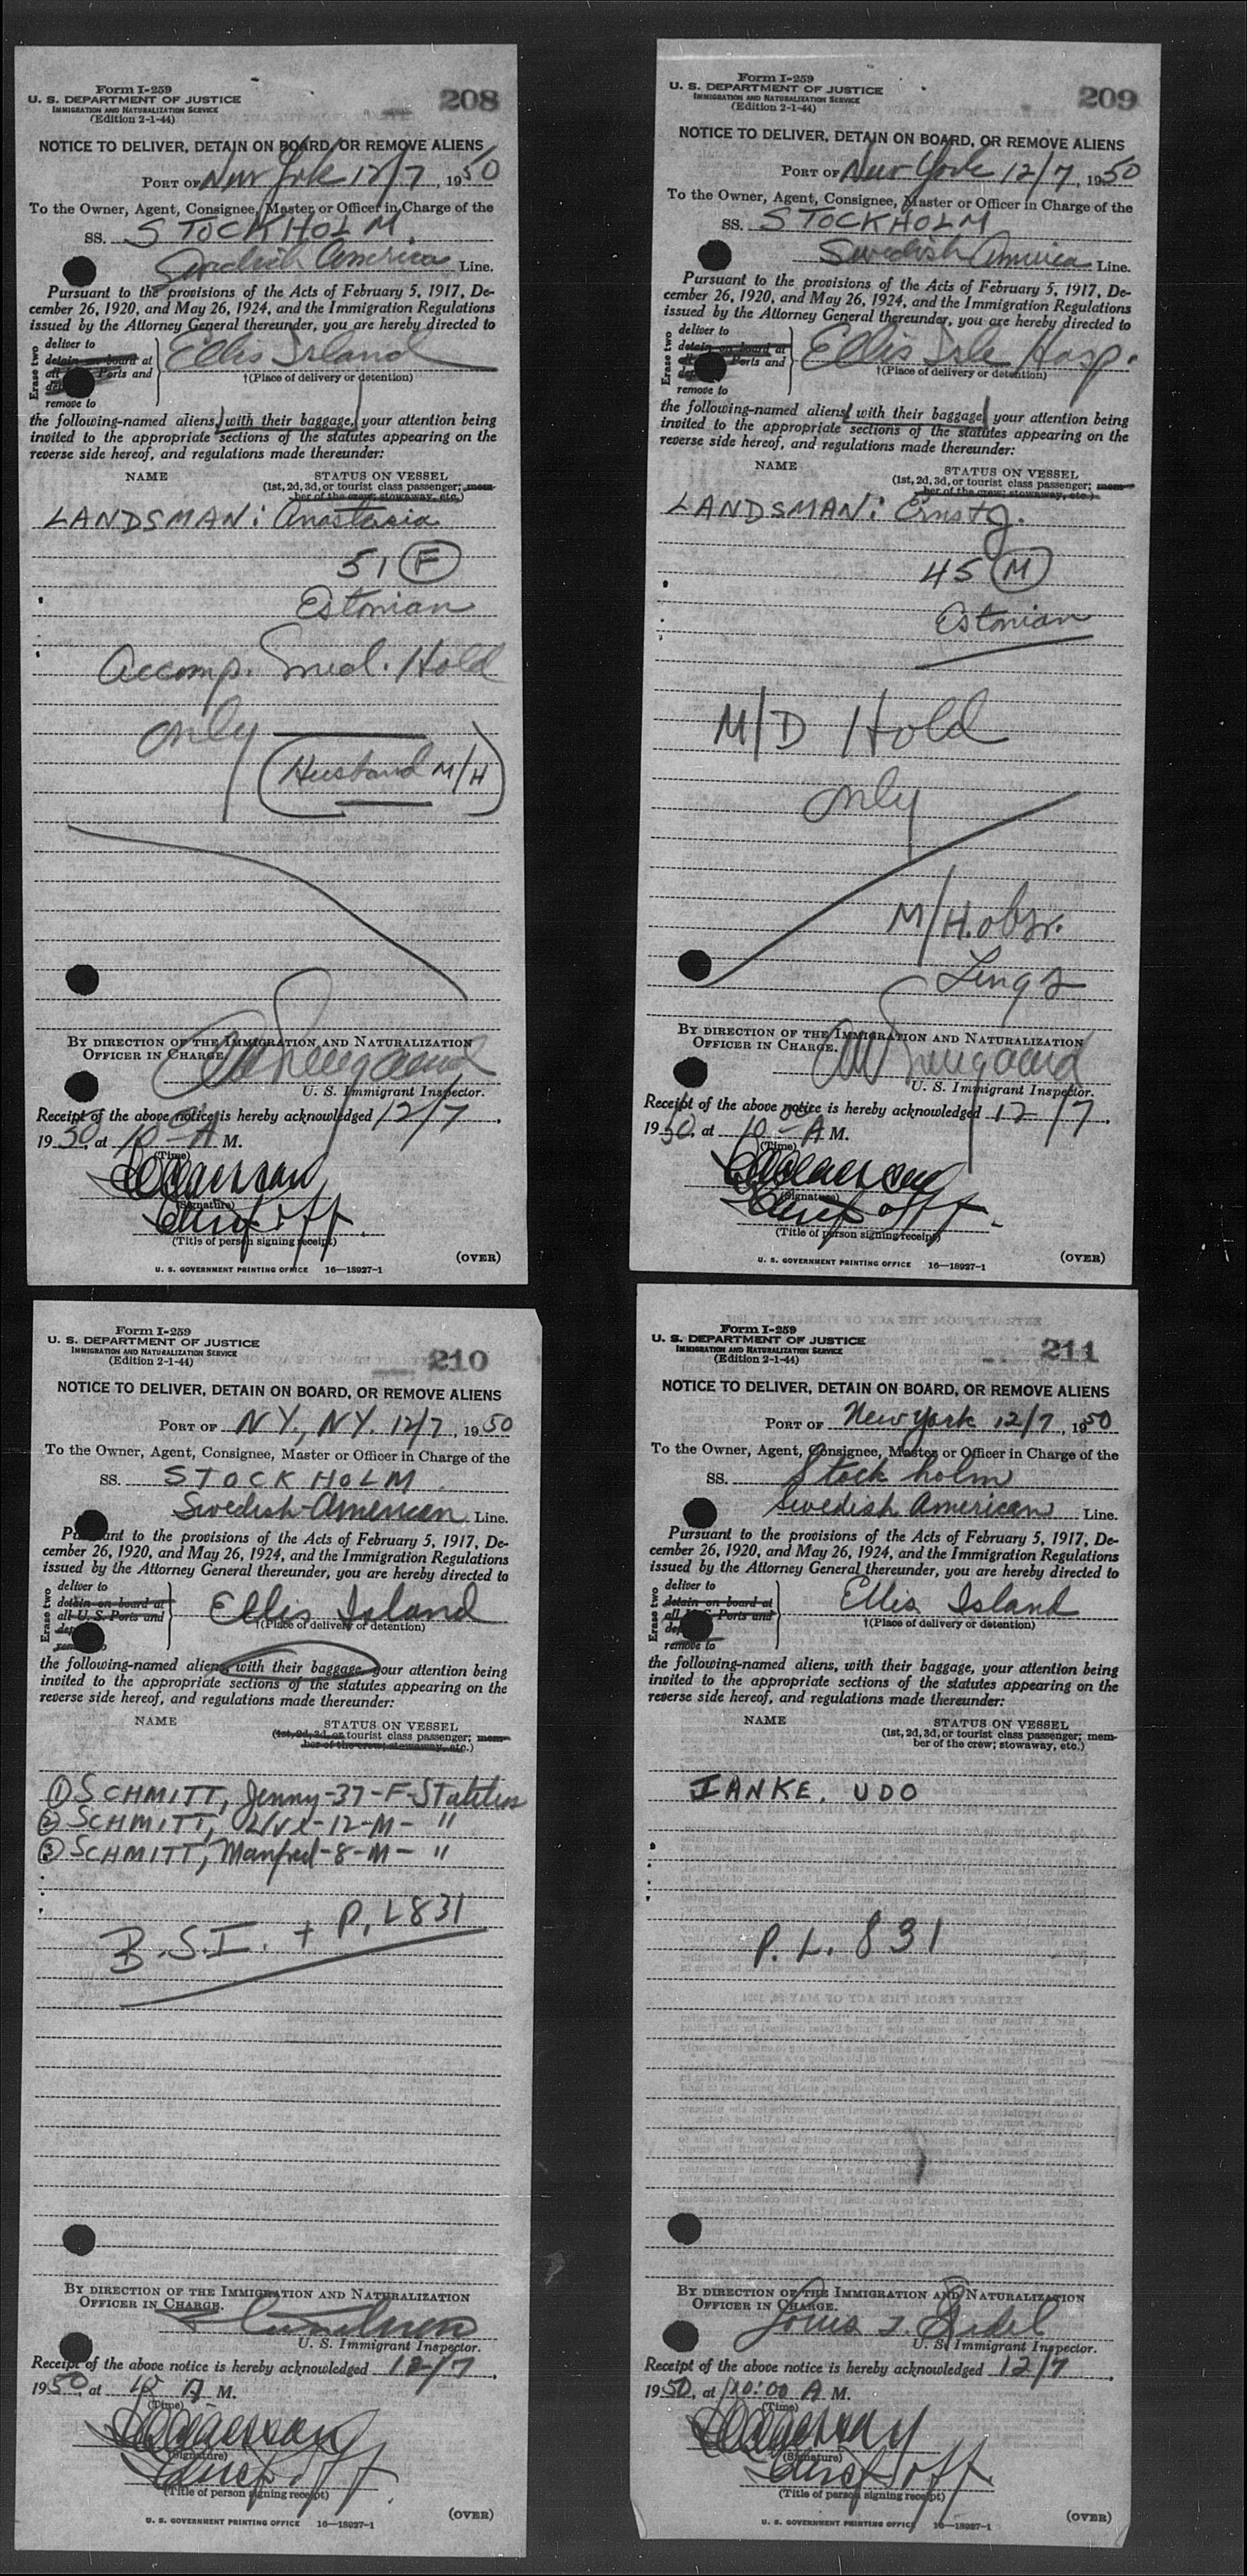 Form I-259
U. S. DEPARTMENT OF JUSTICE
IMMIGRATION AND NATURALIZATION SERVICE
(Edition 2-1-44)
208
NOTICE TO DELIVER, DETAIN ON BOARD, OR REMOVE ALIENS
PORT OF New York 12/7, 1950
To the Owner, Agent, Consignee, Master or Officer in Charge of the
SS. STOCKHOLM.
Swedish America Line.
Pursuant to the provisions of the Acts of February 5, 1917, De-
cember 26, 1920, and May 26, 1924, and the Immigration Regulations
issued by the Attorney General thereunder, you are hereby directed to
Erase two
deliver to
detain on board at
all Ports and
remove to
Ellis Island
†(Place of delivery or detention)
the following-named aliens, with their baggage, your attention being
invited to the appropriate sections of the statutes appearing on the
reverse side hereof, and regulations made thereunder:
NAME STATUS ON VESSEL
(1st, 2d, 3d, or tourist class passenger; mem-
ber of the crew; stowaway, etc.)
LANDSMAN: Anastasia
51 F
Estonian
Accomp. Med. Hold
only
(Husband M/H)
BY DIRECTION OF THE IMMIGRATION AND NATURALIZATION
OFFICER IN CHARGE.
U. S. Immigrant Inspector.
Receipt of the above notice is hereby acknowledged 12/7,
1950, at 10 00 A M.
(Time)
(Signature)
(Title of person signing receipt)
(OVER)
U. S. GOVERNMENT PRINTING OFFICE 16—18927-1
Form I-259
U. S. DEPARTMENT OF JUSTICE
IMMIGRATION AND NATURALIZATION SERVICE
(Edition 2-1-44)
209
NOTICE TO DELIVER, DETAIN ON BOARD, OR REMOVE ALIENS
PORT OF New York 12/7, 1950
To the Owner, Agent, Consignee, Master or Officer in Charge of the
SS. STOCKHOLM
Swedish America Line.
Pursuant to the provisions of the Acts of February 5, 1917, De-
cember 26, 1920, and May 26, 1924, and the Immigration Regulations
issued by the Attorney General thereunder, you are hereby directed to
Erase two
deliver to
detain on board at
all Ports and
remove to
Ellis Isle Hosp.
†(Place of delivery or detention)
the following-named aliens, with their baggage, your attention being
invited to the appropriate sections of the statutes appearing on the
reverse side hereof, and regulations made thereunder:
NAME STATUS ON VESSEL
(1st, 2d, 3d, or tourist class passenger; mem-
ber of the crew; stowaway, etc.)
LANDSMAN: Ernst J.
45 M
Estonian
M/D Hold
only
M/H. obsr.
Lungs
BY DIRECTION OF THE IMMIGRATION AND NATURALIZATION
OFFICER IN CHARGE.
U. S. Immigrant Inspector.
Receipt of the above notice is hereby acknowledged 12/7,
1950, at 10 00 A M.
(Time)
(Signature)
(Title of person signing receipt)
(OVER)
U. S. GOVERNMENT PRINTING OFFICE 16—18927-1
Form I-259
U. S. DEPARTMENT OF JUSTICE
IMMIGRATION AND NATURALIZATION SERVICE
(Edition 2-1-44)
210
NOTICE TO DELIVER, DETAIN ON BOARD, OR REMOVE ALIENS
PORT OF N.Y., N.Y. 12/7, 1950
To the Owner, Agent, Consignee, Master or Officer in Charge of the
SS. STOCKHOLM.
Swedish-American Line.
Pursuant to the provisions of the Acts of February 5, 1917, De-
cember 26, 1920, and May 26, 1924, and the Immigration Regulations
issued by the Attorney General thereunder, you are hereby directed to
Erase two
deliver to
detain on board at
all U. S. Ports and
Ellis Island
†(Place of delivery or detention)
the following-named aliens, with their baggage, your attention being
invited to the appropriate sections of the statutes appearing on the
reverse side hereof, and regulations made thereunder:
NAME STATUS ON VESSEL
(1st, 2d, 3d, or tourist class passenger; mem-
ber of the crew; stowaway, etc.)
① SCHMITT, Jenny-37-F-Stateless
② SCHMITT, -12-M- "
③ SCHMITT, Manfred-8-M- "
B.S.I. + P.L 831
BY DIRECTION OF THE IMMIGRATION AND NATURALIZATION
OFFICER IN CHARGE.
U. S. Immigrant Inspector.
Receipt of the above notice is hereby acknowledged 12/7,
1950, at A M.
(Time)
(Signature)
(Title of person signing receipt)
(OVER)
U. S. GOVERNMENT PRINTING OFFICE 16—18927-1
Form I-259
U. S. DEPARTMENT OF JUSTICE
IMMIGRATION AND NATURALIZATION SERVICE
(Edition 2-1-44)
211
NOTICE TO DELIVER, DETAIN ON BOARD, OR REMOVE ALIENS
PORT OF New York 12/7, 1950
To the Owner, Agent, Consignee, Master or Officer in Charge of the
SS. Stockholm
Swedish American Line.
Pursuant to the provisions of the Acts of February 5, 1917, De-
cember 26, 1920, and May 26, 1924, and the Immigration Regulations
issued by the Attorney General thereunder, you are hereby directed to
Erase two
deliver to
detain on board at
all U. S. Ports and
remove to
Ellis Island
†(Place of delivery or detention)
the following-named aliens, with their baggage, your attention being
invited to the appropriate sections of the statutes appearing on the
reverse side hereof, and regulations made thereunder:
NAME STATUS ON VESSEL
(1st, 2d, 3d, or tourist class passenger; mem-
ber of the crew; stowaway, etc.)
IANKE, UDO
P. L. 831
BY DIRECTION OF THE IMMIGRATION AND NATURALIZATION
OFFICER IN CHARGE.
Louis
U. S. Immigrant Inspector.
Receipt of the above notice is hereby acknowledged 12/7,
1950, at 10:00 A M.
(Time)
(Signature)
(Title of person signing receipt)
(OVER)
U. S. GOVERNMENT PRINTING OFFICE 16—18927-1